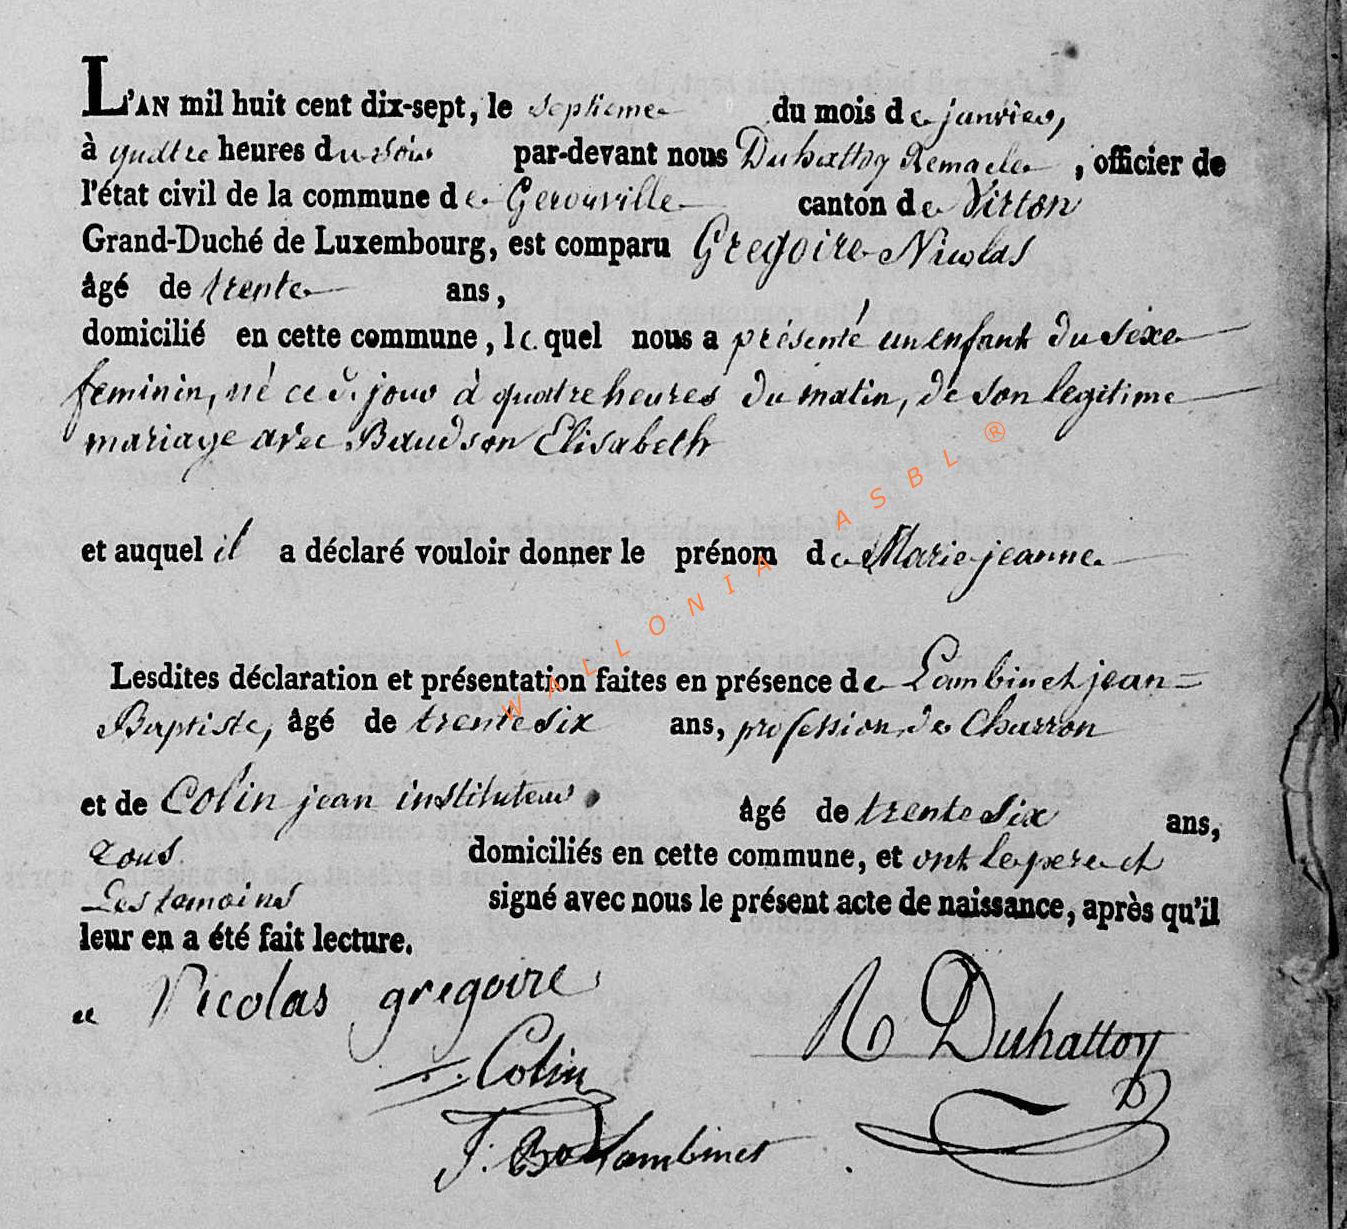 L'AN mil huit cent dix-sept, le septieme du mois de janvier,
à quattre heures du soir par-devant nous Duhattoy Remacle, officier de
l'état civil de la commune de Gerouville canton de Virton
Grand-Duché de Luxembourg, est comparu Gregoire Nicolas
âgé de trente ans,
domicilié en cette commune, lequel nous a présenté un enfant du sexe
feminin, né ce d. jour à quattre heures du matin, de son legitime
mariage avec Baudson Elisabeth
et auquel il a déclaré vouloir donner le prénom de Marie jeanne
Lesdites déclaration et présentation faites en présence de Lambinet jean=
Baptiste, âgé de trente six ans, profession de Charron
et de Colin jean instituteur âgé de trente six ans,
tous domiciliés en cette commune, et ont le pere et
Les temoins signé avec nous le présent acte de naissance, après qu'il
leur en a été fait lecture.
Nicolas gregoire
R Duhattoy
Colin
J. Bte Lambinet
WALLONIA ASBL ®